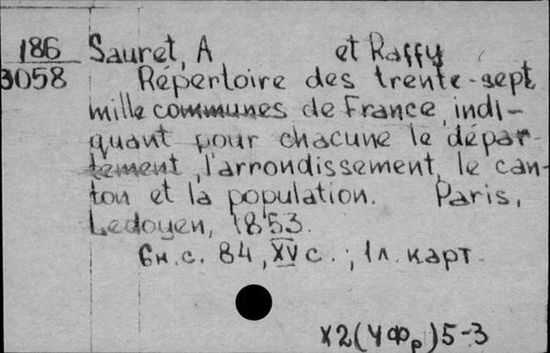 186 Sauret, A et Raffy
3058 Répertoire des trente-sept
mille communes de France, indi-
quant pour chacune le dépar-
tement, l'arrondissement, le can-
ton et la population. Paris,
Ledoyen, 1853.
6н. с. 84, XV с.; 1 л. карт.
X2(УФр)5-3